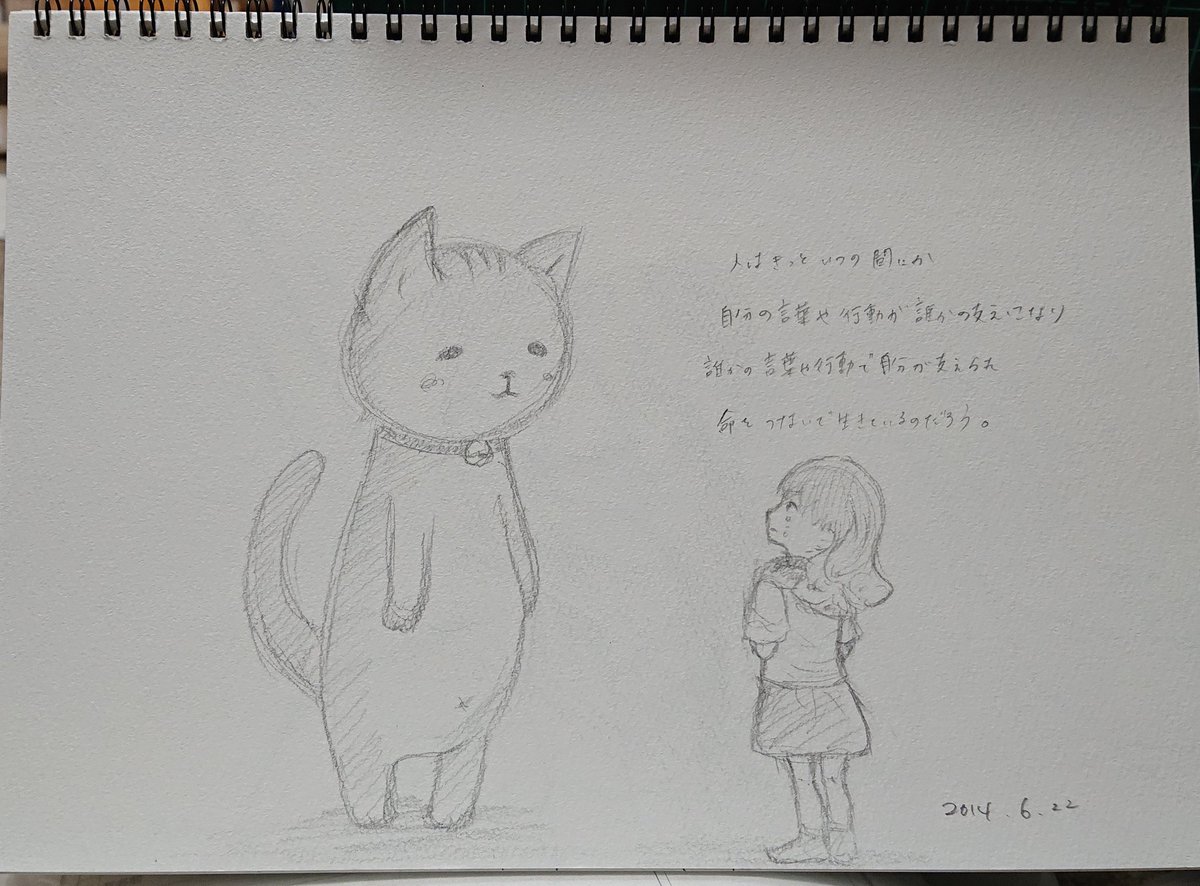 人はきっといつの間にか
自分の言葉や行動が誰かの支えになり
誰かの言葉や行動で自分が支えられ
命をつないで生きているのだろう。
2014.6.22